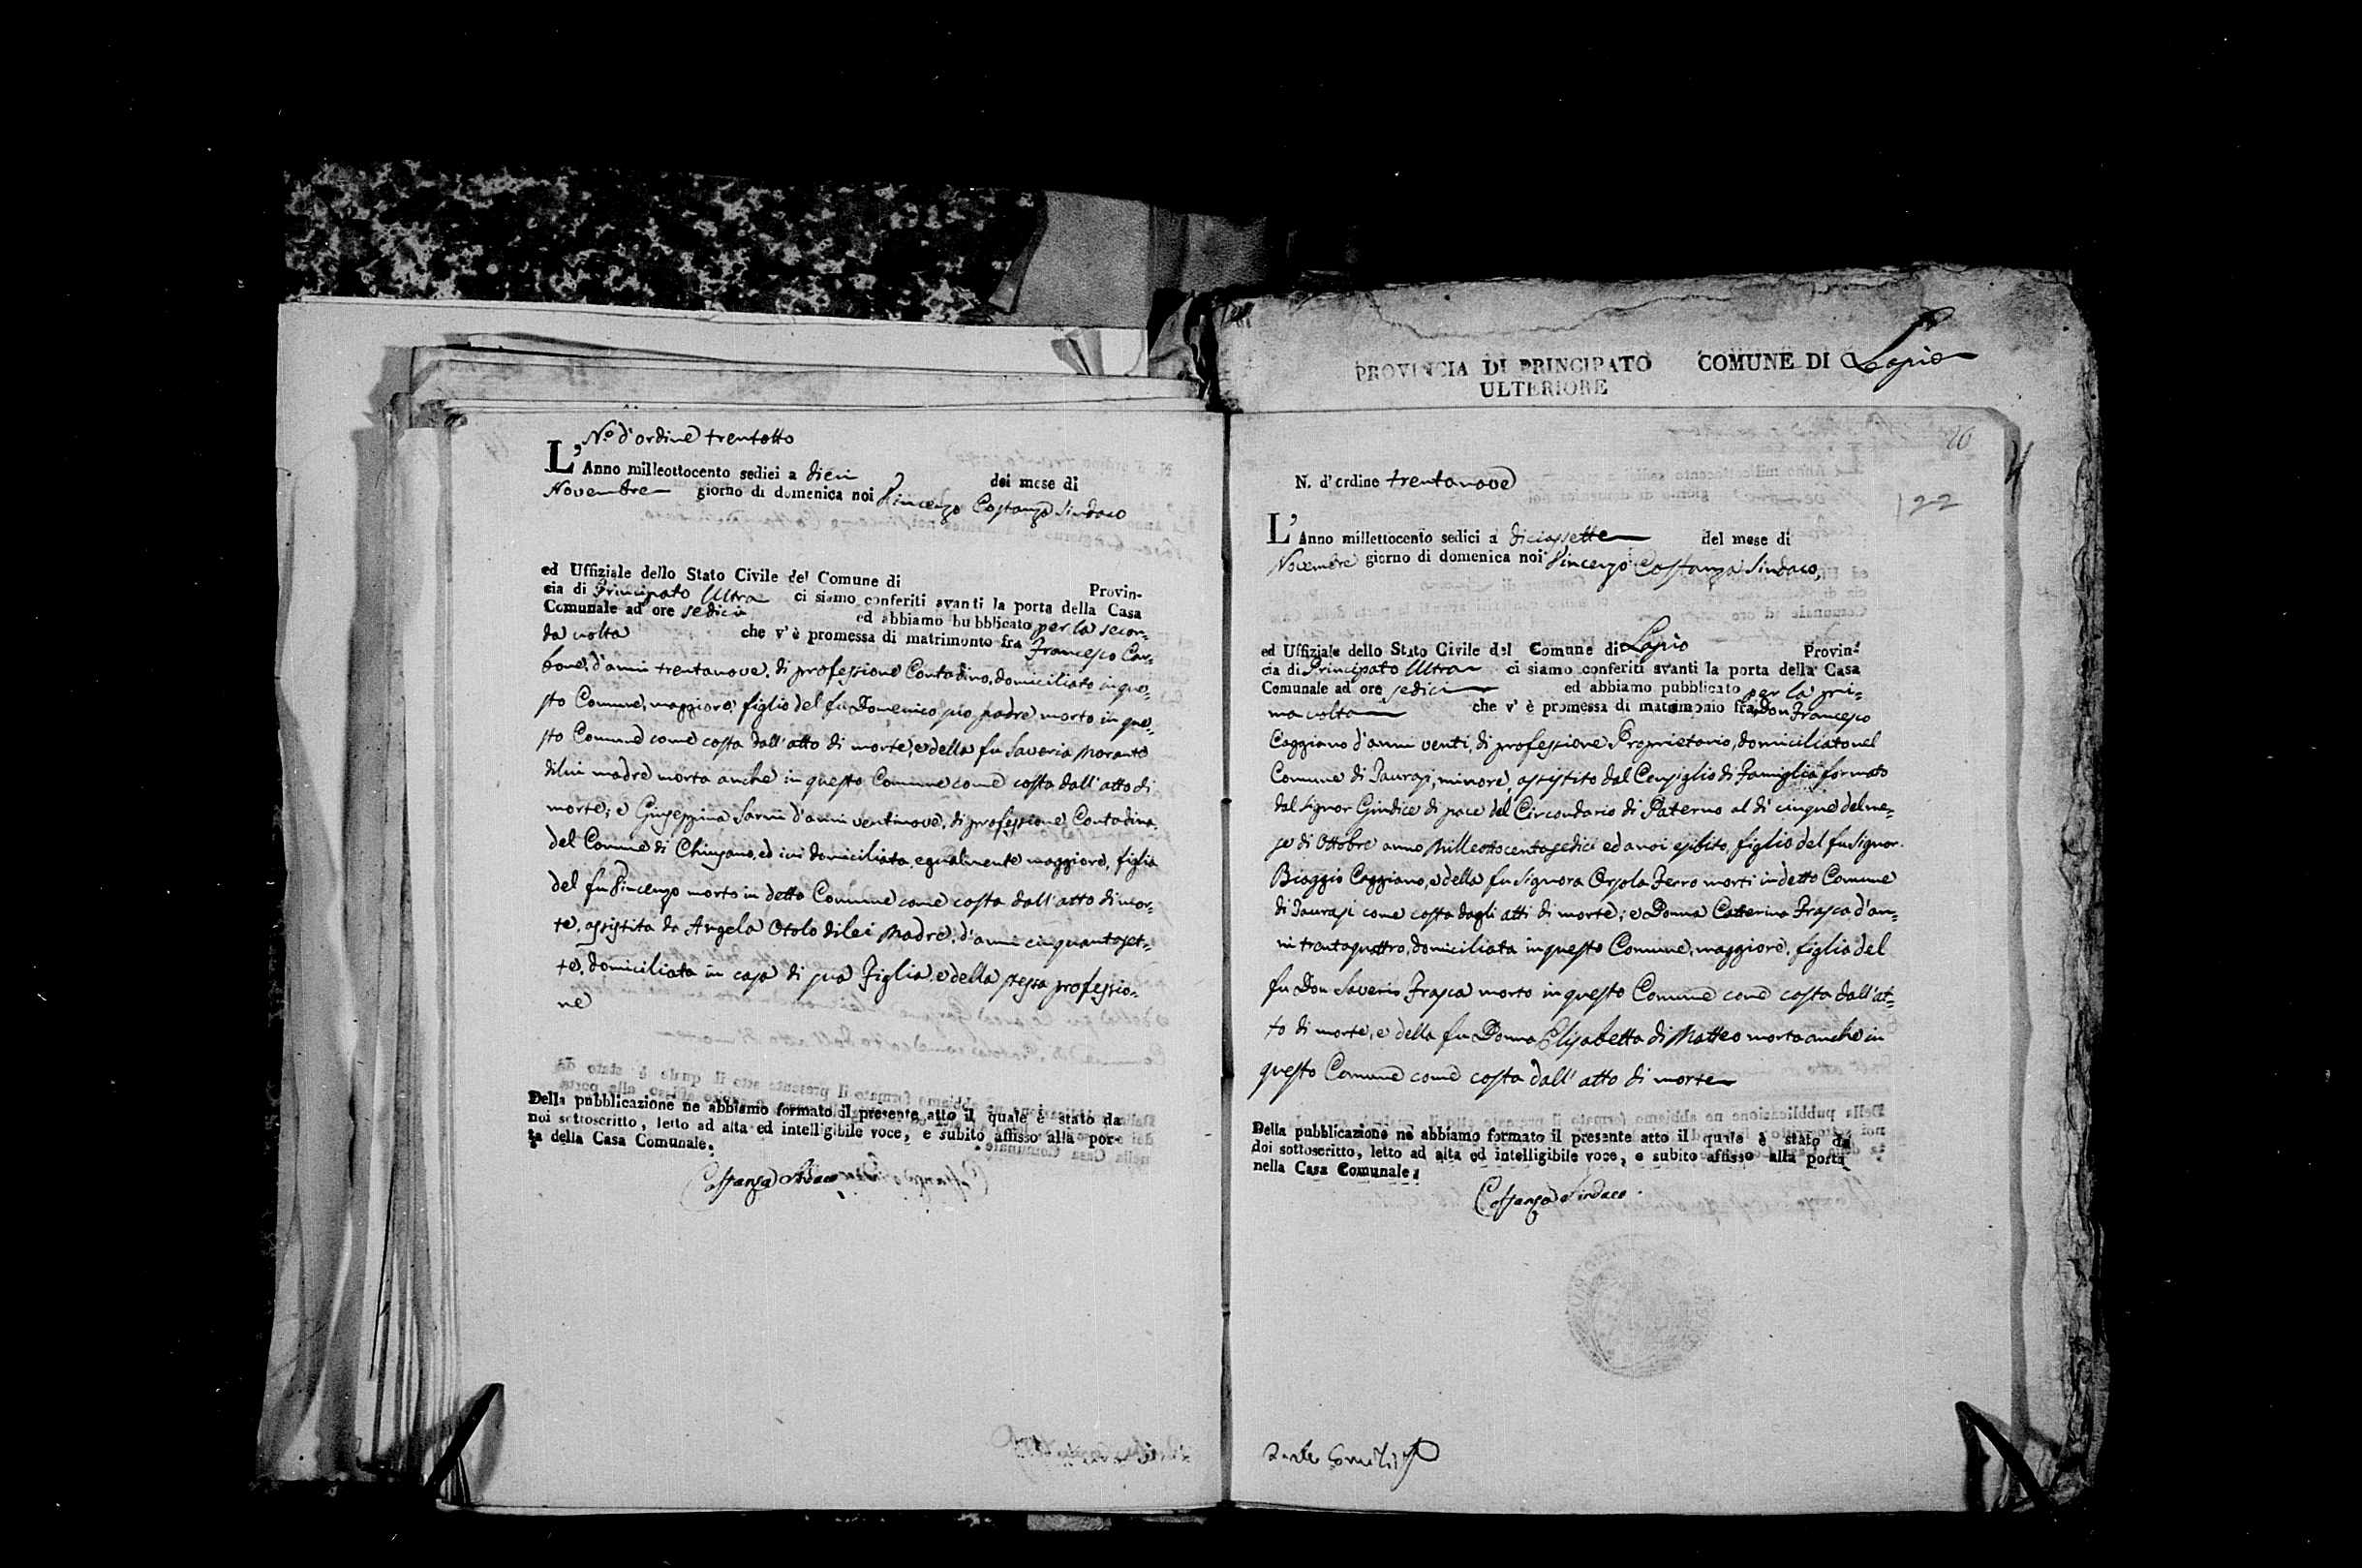 N.º d'ordine trentotto
L'Anno milleottocento sedici a dieci del mese di
Novembre giorno di domenica noi Vincenzo Costanza Sindaco
ed Uffiziale dello Stato Civile del Comune di Provin-
cia di Principato Ultra ci siamo conferiti avanti la porta della Casa
Comunale ad ore sedici ed abbiamo bu bblicato per la secon-
da volta che v' è promessa di matrimonto fra Francesco Car-
bone, d'anni trentanove, di professione Contadino, domiciliato in que-
sto Comune, maggiore, figlio del fu Domenico suo padre morto in que-
sto Comune come costa dall'atto di morte, e della fu Saveria Morante
di lui madre morta anche in questo Comune come costa dall'atto di
morte; e Giuseppina Sarni d'anni ventinove, di professione Contadina,
del Comune di Chiusano, ed ivi domiciliata, egualmente maggiore, figlia
del fu Vincenzo morto in detto Comune come costa dall'atto di mor-
te, assistita da Angela Otolo di lei Madre, d'anni cinquantaset-
te, domiciliata in casa di sua Figlia, e della stessa professio-
ne
Della pubblicazione ne abbiamo formato il presente atto il quale è stato da
noi sottoscritto, letto ad alta ed intelligibile voce, e subito affisso alla por-
ta della Casa Comunale.
Costanza Sindaco
PROVINCIA DI PRINCIPATO COMUNE DI Lapio
ULTERIORE
20
122
N. d'ordine trentanove
L'Anno millettocento sedici a diciassette del mese di
Novembre giorno di domenica noi Vincenzo Costanza Sindaco,
ed Uffiziale dello Stato Civile del Comune di Lapio Provin-
cia di Principato Ultra ci siamo conferiti avanti la porta della Casa
Comunale ad ore sedici ed abbiamo pubblicato per la pri-
ma volta che v' è promessa di matrimonio fra Don Francesco
Caggiano d'anni venti, di professione Proprietario, domiciliato nel
Comune di Taurasi, minore, assistito dal Consiglio di Famiglia formato
dal Signor Giudice di pace del Circondario di Paterno al dì cinque del me-
se di Ottobre anno milleottocentosedici ed a noi esibito, figlio del fu Signor
Biaggio Caggiano, e della fu Signora Orsola Ferro morti in detto Comune
di Taurasi come costa dagli atti di morte; e Donna Catterina Frasca d'an-
ni trentaquattro, domiciliata in questo Comune, maggiore, figlia del
fu Don Saverio Frasca morto in questo Comune come costa dall'at-
to di morte, e della fu Donna Elisabetta di Matteo morta anche in
questo Comune come costa dall'atto di morte
Della pubblicazione ne abbiamo formato il presente atto il quale è stato da
doi sottoscritto, letto ad alta ed intelligibile voce, e subito affisso alla porta
nella Casa Comunale.
Costanza Sindaco